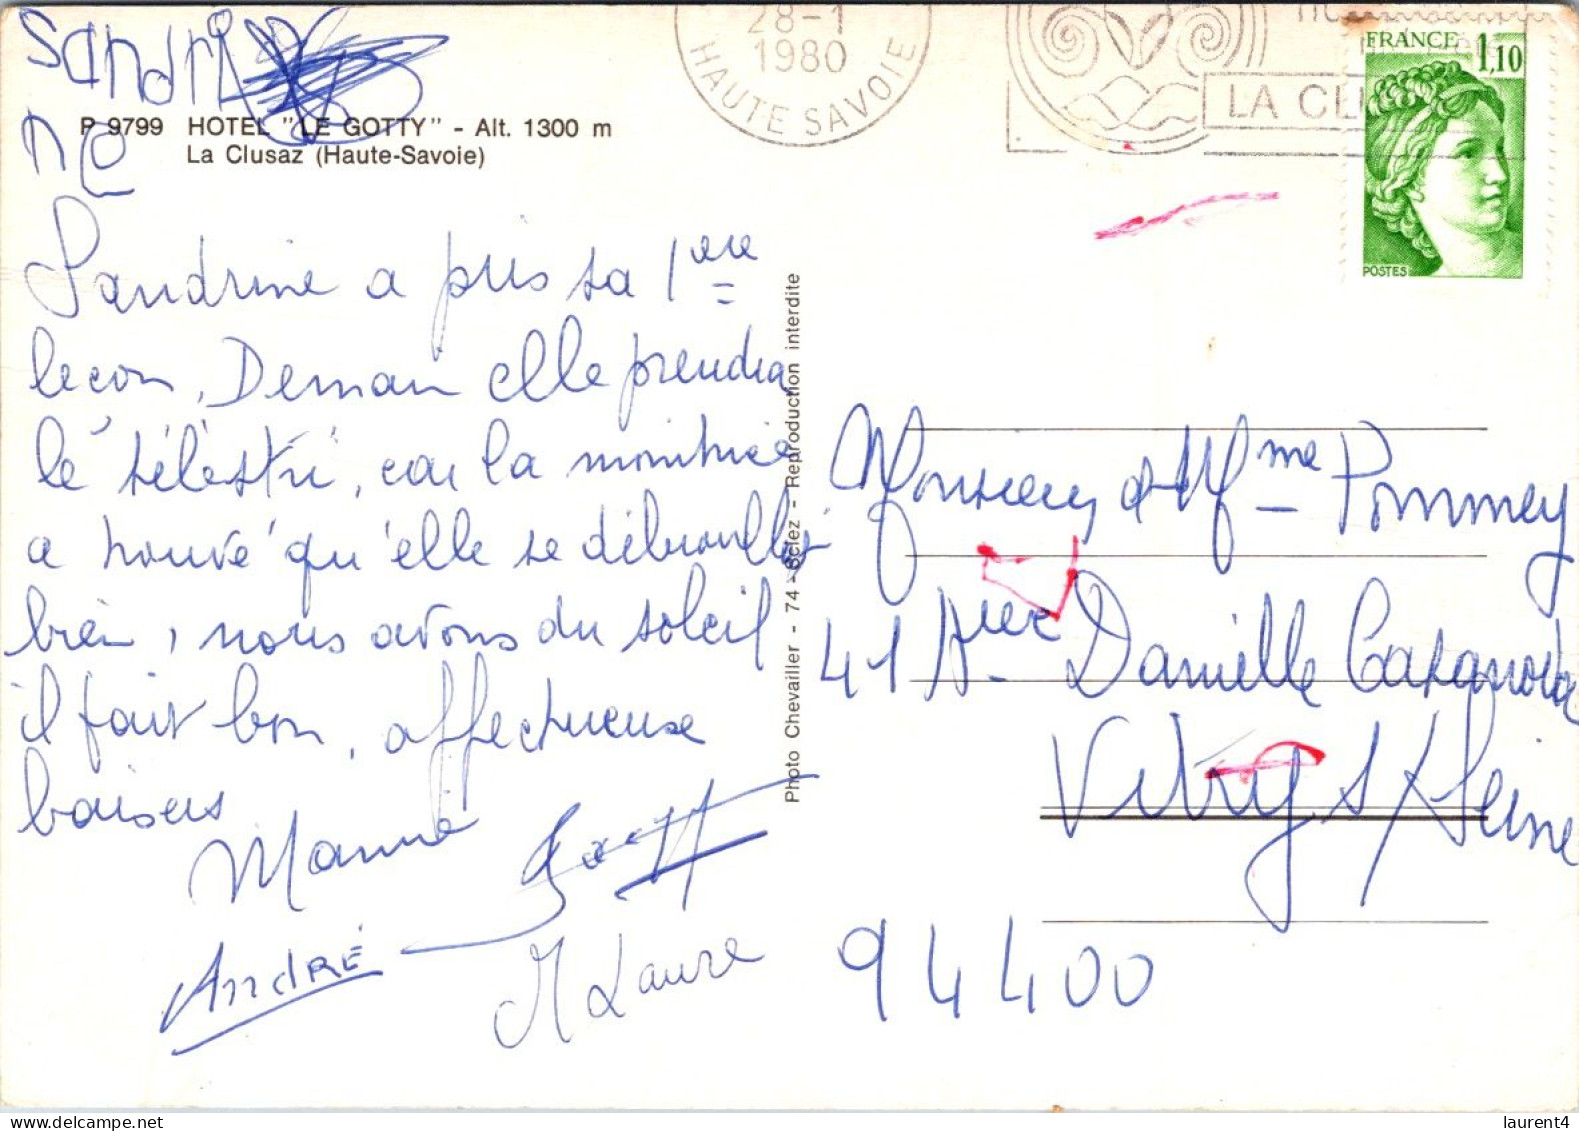 Sandri
ne
P 9799 HOTEL "LE GOTTY" - Alt. 1300 m
La Clusaz (Haute-Savoie)
Sandrine a pris sa 1ère
lecon, Demain elle prendra
le télèski, car la monitrice
a trouvé qu'elle se débrouillait
bien, nous avons du soleil
il fait bon, affectueuse
baisers
Mamie
André
M Laure
Photo Chevaillier - 74 - Sciez - Reproduction interdite
28-1
1980
HAUTE SAVOIE
LA CLU
FRANCE 1,10
POSTES
Monsieur et Mme Pommey
41 Avec Danielle Casanova
Vitry s/Seine
94400
laurent4